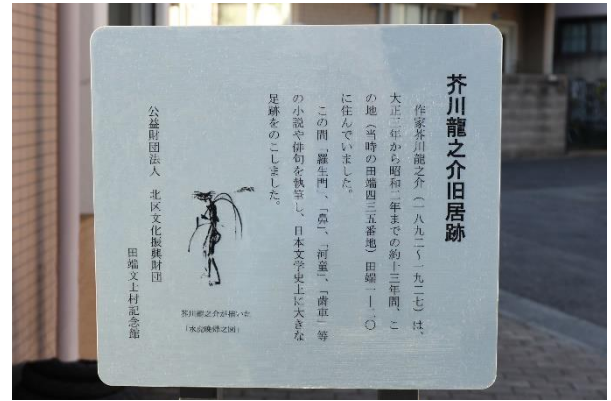 芥川龍之介旧居跡
作家芥川龍之介（一八九二～一九二七）は、
大正三年から昭和二年までの約十三年間、こ
の地（当時の田端四三五番地）田端一―二〇
に住んでいました。
この間「羅生門」、「鼻」、「河童」、「歯車」等
の小説や俳句を執筆し、日本文学史上に大きな
足跡をのこしました。
芥川龍之介が描いた
「水虎晩帰之図」
公益財団法人 北区文化振興財団
田端文士村記念館